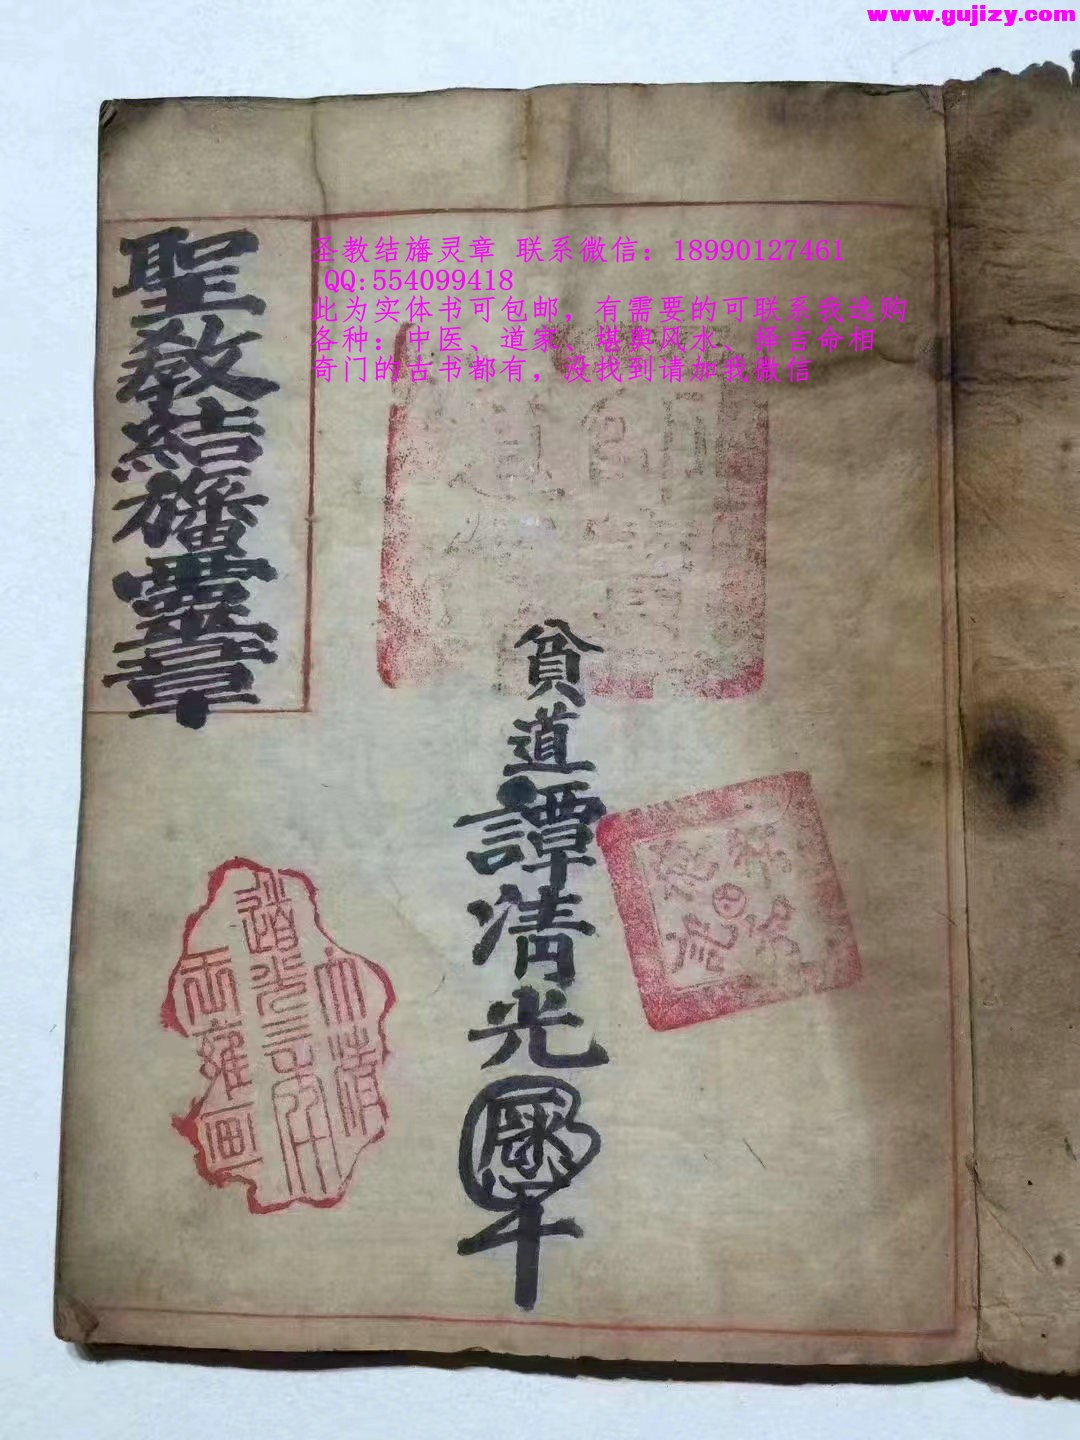 www.gujizy.com
圣教结旛灵章 联系微信：18990127461
QQ:554099418
此为实体书可包邮，有需要的可联系我选购
各种：中医、道家、堪舆风水、择吉命相
奇门的古书都有，没找到请加我微信
聖教結旛靈章
貧道譚清光
大清
道光三十年